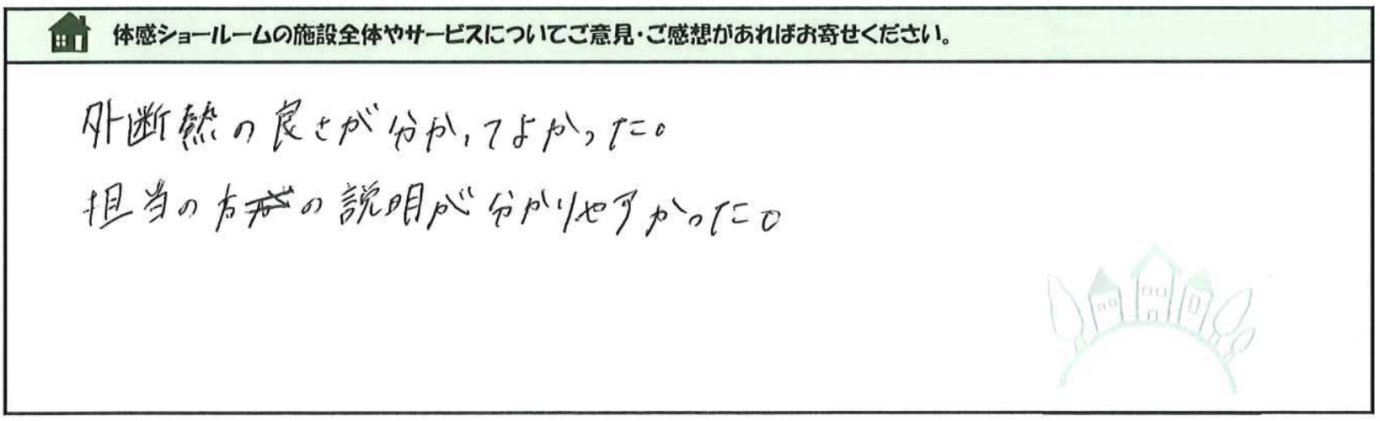 体感ショールームの施設全体やサービスについてご意見・ご感想があればお寄せください。
外断熱の良さが分かってよかった。
担当の方の説明が分かりやすかった。